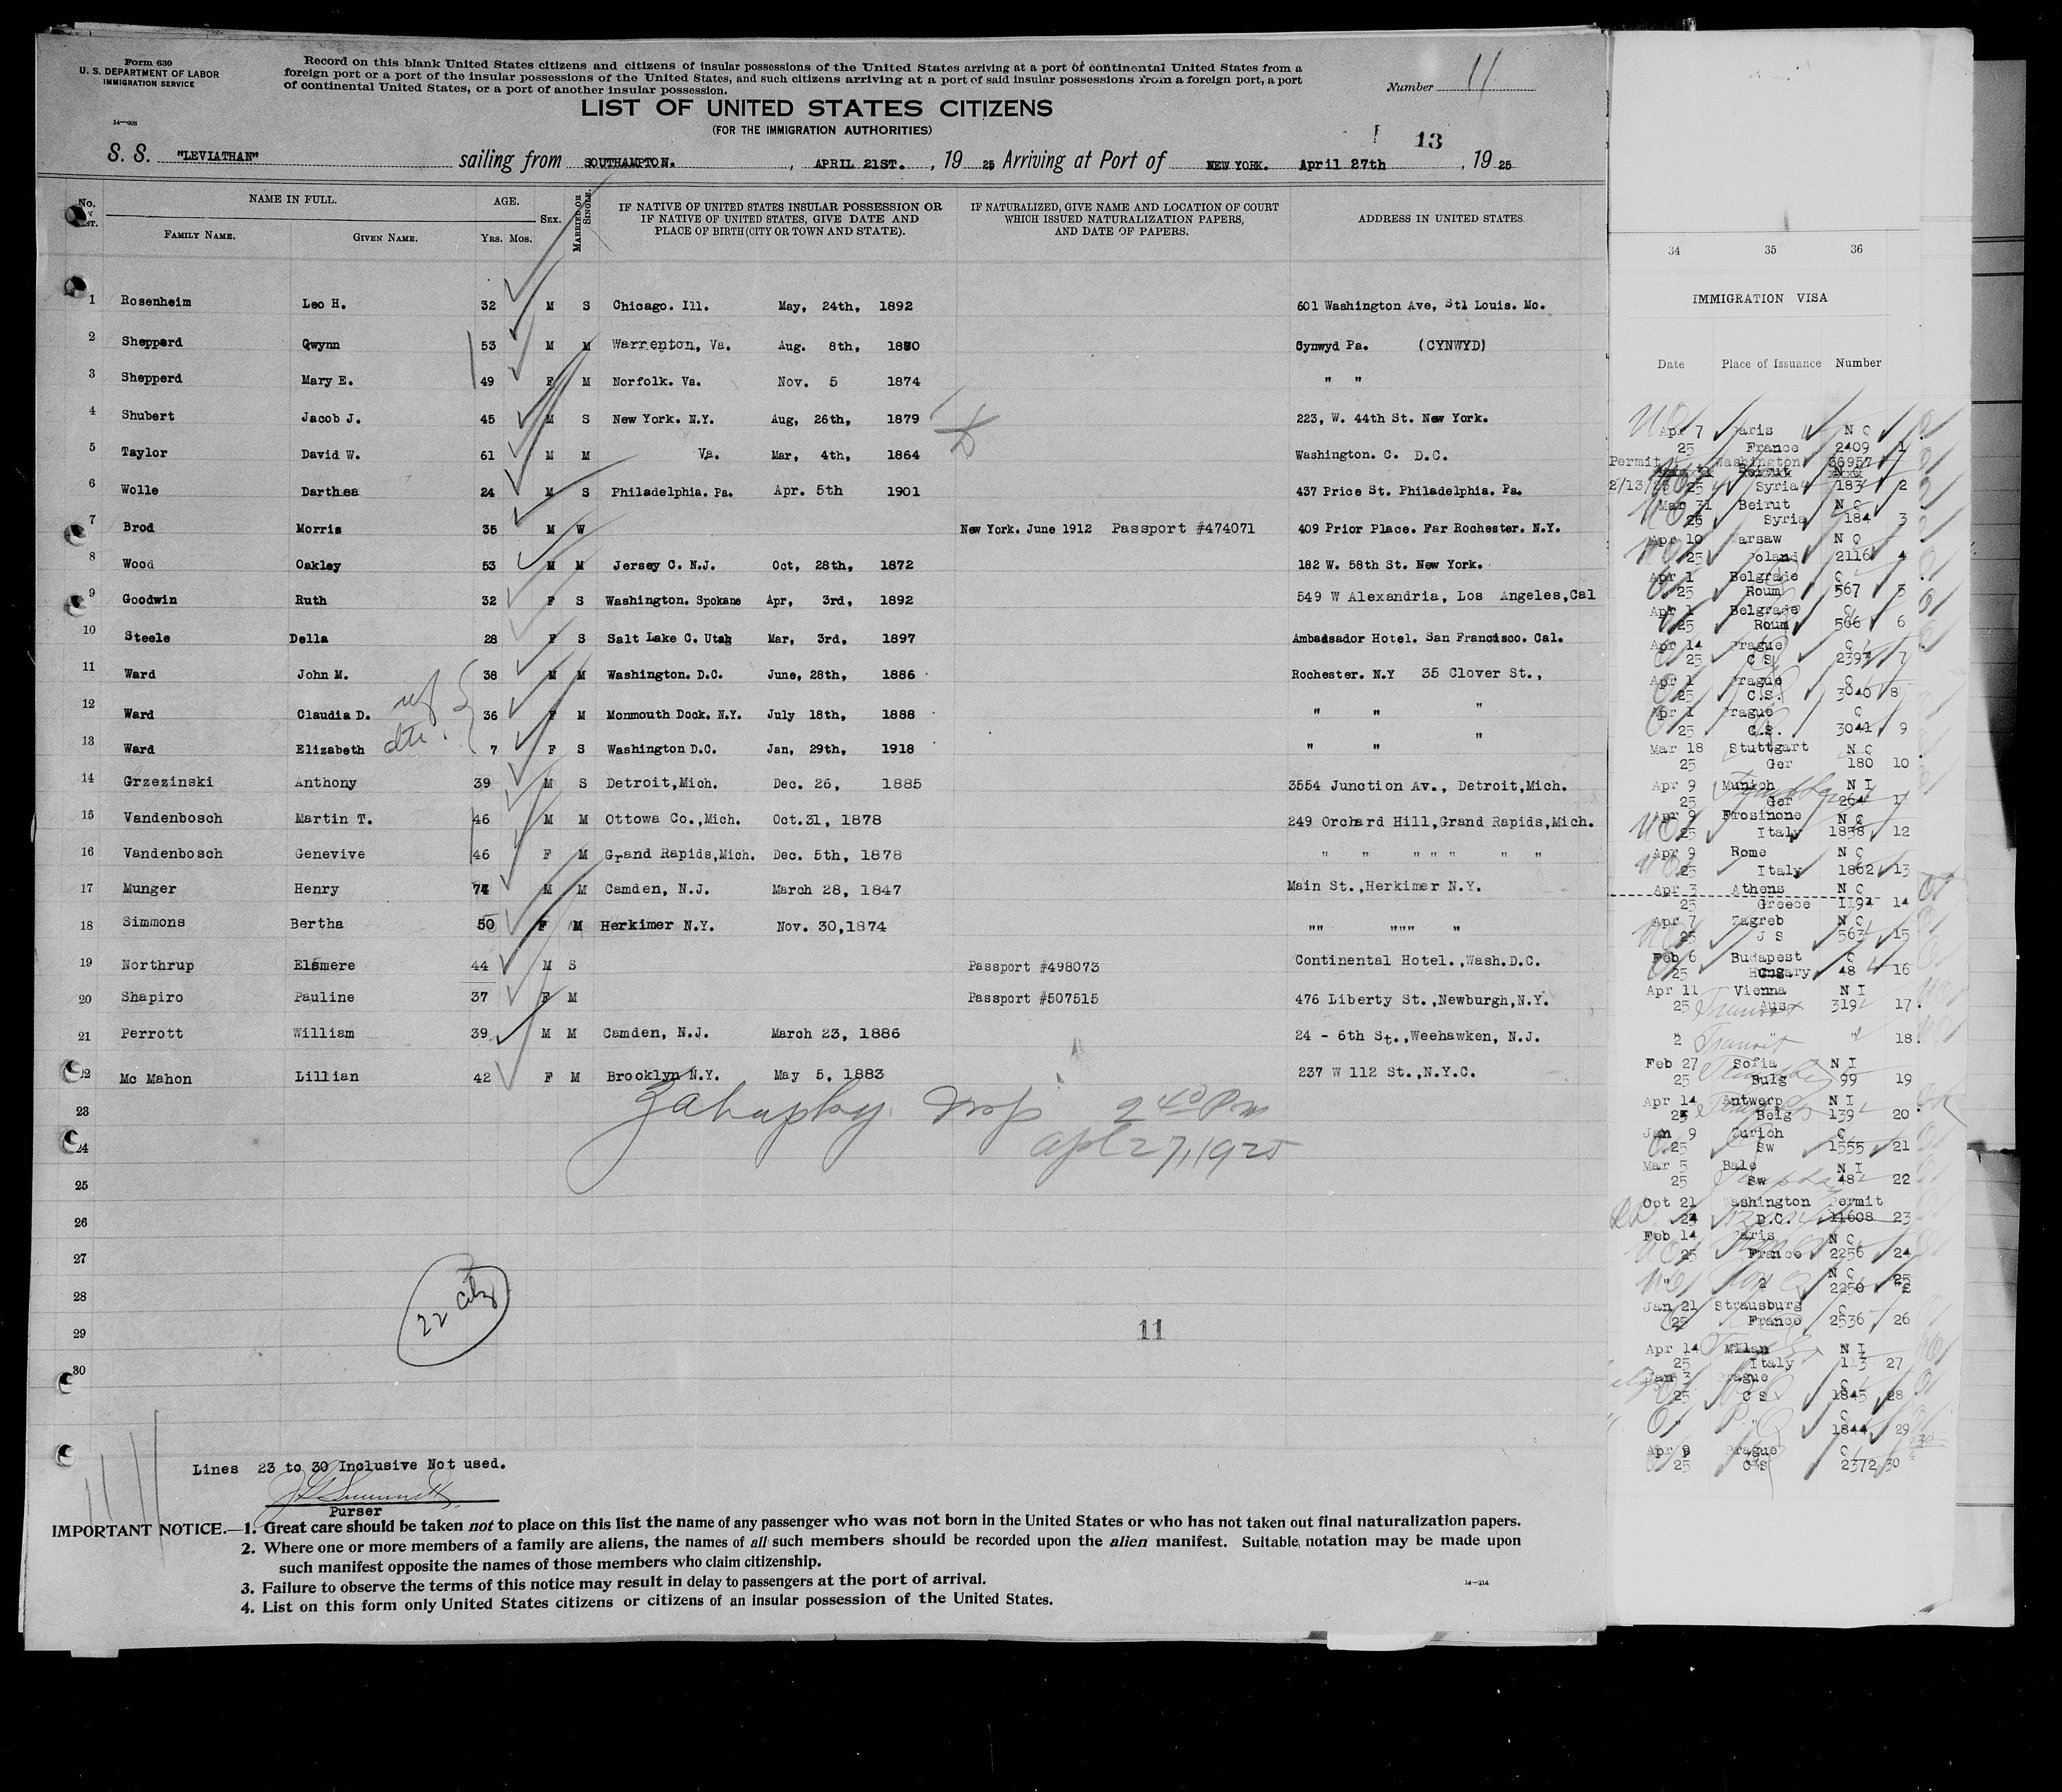 Form 630
U. S. DEPARTMENT OF LABOR
IMMIGRATION SERVICE
14—608
Record on this blank United States citizens and citizens of insular possessions of the United States arriving at a port of continental United States from a
foreign port or a port of the insular possessions of the United States, and such citizens arriving at a port of said insular possessions from a foreign port, a port
of continental United States, or a port of another insular possession.
Number 11
LIST OF UNITED STATES CITIZENS
(FOR THE IMMIGRATION AUTHORITIES)
13
S. S. "LEVIATHAN" sailing from SOUTHAMPTON. , APRIL 21ST. , 19 25 Arriving at Port of NEW YORK. April 27th , 19 25
No. NAME IN FULL. AGE. SEX. MARRIED OR SINGLE. IF NATIVE OF UNITED STATES INSULAR POSSESSION OR IF NATIVE OF UNITED STATES, GIVE DATE AND PLACE OF BIRTH (CITY OR TOWN AND STATE). IF NATURALIZED, GIVE NAME AND LOCATION OF COURT WHICH ISSUED NATURALIZATION PAPERS, AND DATE OF PAPERS. ADDRESS IN UNITED STATES.
FAMILY NAME. GIVEN NAME. YRS. MOS.
1 Rosenheim Leo H. 32 M S Chicago. Ill. May, 24th, 1892 601 Washington Ave, Stl Louis. Mo.
2 Shepperd Gwynn 53 M M Warrenton, Va. Aug. 8th, 1870 Cynwyd Pa. (CYNWYD)
3 Shepperd Mary E. 49 F M Norfolk. Va. Nov. 5 1874 " "
4 Shubert Jacob J. 45 M S New York. N.Y. Aug, 26th, 1879 223, W. 44th St. New York.
5 Taylor David W. 61 M M Va. Mar, 4th, 1864 Washington. C. D.C.
6 Wolle Darthea 24 M S Philadelphia. Pa. Apr. 5th 1901 437 Price St. Philadelphia. Pa.
7 Brod Morris 35 M W New York. June 1912 Passport #474071 409 Prior Place. Far Rochester. N.Y.
8 Wood Oakley 53 M M Jersey C. N.J. Oct, 28th, 1872 182 W. 58th St. New York.
9 Goodwin Ruth 32 F S Washington. Spokane Apr, 3rd, 1892 549 W Alexandria, Los Angeles,Cal
10 Steele Della 28 F S Salt Lake C. Utah Mar, 3rd, 1897 Ambadsador Hotel. San Francisco. Cal.
11 Ward John M. 38 M M Washington. D.C. June, 28th, 1886 Rochester. N.Y 35 Clover St.,
12 Ward Claudia D. wf 36 F M Monmouth Dock. N.Y. July 18th, 1888 " " "
13 Ward Elizabeth dtr. 7 F S Washington D.C. Jan, 29th, 1918 " " "
14 Grzezinski Anthony 39 M S Detroit,Mich. Dec. 26, 1885 3554 Junction Av., Detroit,Mich.
15 Vandenbosch Martin T. 46 M M Ottowa Co.,Mich. Oct.31, 1878 249 Orchard Hill,Grand Rapids,Mich.
16 Vandenbosch Genevive 46 F M Grand Rapids,Mich. Dec. 5th, 1878 " " " " " " "
17 Munger Henry 74 M M Camden, N.J. March 28, 1847 Main St.,Herkimer N.Y.
18 Simmons Bertha 50 F M Herkimer N.Y. Nov. 30,1874 "" """ "
19 Northrup Elsmere 44 M S Passport #498073 Continental Hotel.,Wash.D.C.
20 Shapiro Pauline 37 F M Passport #507515 476 Liberty St.,Newburgh,N.Y.
21 Perrott William 39 M M Camden, N.J. March 23, 1886 24 - 6th St.,Weehawken, N.J.
22 Mc Mahon Lillian 42 F M Brooklyn N.Y. May 5, 1883 237 W 112 St.,N.Y.C.
23
Insp 2 40 Pm
24
Apl 27, 1925
25
26
27
28
22 city
29
11
30
Lines 23 to 30 Inclusive Not used.
Purser
IMPORTANT NOTICE.—1. Great care should be taken not to place on this list the name of any passenger who was not born in the United States or who has not taken out final naturalization papers.
2. Where one or more members of a family are aliens, the names of all such members should be recorded upon the alien manifest. Suitable notation may be made upon
such manifest opposite the names of those members who claim citizenship.
3. Failure to observe the terms of this notice may result in delay to passengers at the port of arrival.
4. List on this form only United States citizens or citizens of an insular possession of the United States.
14—214
34 35 36
IMMIGRATION VISA
Date Place of Issuance Number
Apr 7 Paris N Q
25 France 2409 1
Permit Washington 36957
2/13/25 25 Syria 183 2
Mar 31 Beirut N Q
26 Syria 184 3
Apr 10 Warsaw N Q
25 Poland 2116 4
Apr 1 Belgrade Q
25 Roum 567 5
Apr 1 Belgrade Q
25 Roum 566 6
Apr 14 Prague Q
25 C S 2393 7
Apr 1 Prague Q
25 C.S. 3040 8
Apr 1 Prague Q
25 C.S. 3041 9
Mar 18 Stuttgart N Q
25 Ger 180 10
Apr 9 Munich N I
25 Ger 264 11
Apr 9 Frosinone N Q
25 Italy 1858 12
Apr 9 Rome N Q
25 Italy 1862 13
Apr 3 Athens N Q
25 Greece 1194 14
Apr 7 Zagreb N Q
25 J S 563 15
Feb 6 Budapest Q
25 Hungary 48 16
Apr 11 Vienna N I
25 Transit Aus 319 17
2 Transit " " 18
Feb 27 Sofia N I
25 Bulg 99 19
Apr 14 Antwerp N I
25 Belg 139 20
Jan 9 Zurich Q
25 Sw 1555 21
Mar 5 Bale N I
25 Sw 48 22
Oct 21 Washington Permit
24 D.C. 11608 23
Feb 14 Paris N Q
25 France 2256 24
" N Q 25
2250
Jan 21 Strausburg Q
25 France 2536 26
Apr 14 Milan N I
25 Italy 113 27
Jan 3 Prague Q
25 C S 1845 28
" Q
1844 29
Apr 9 Prague Q
25 C S 2372 30